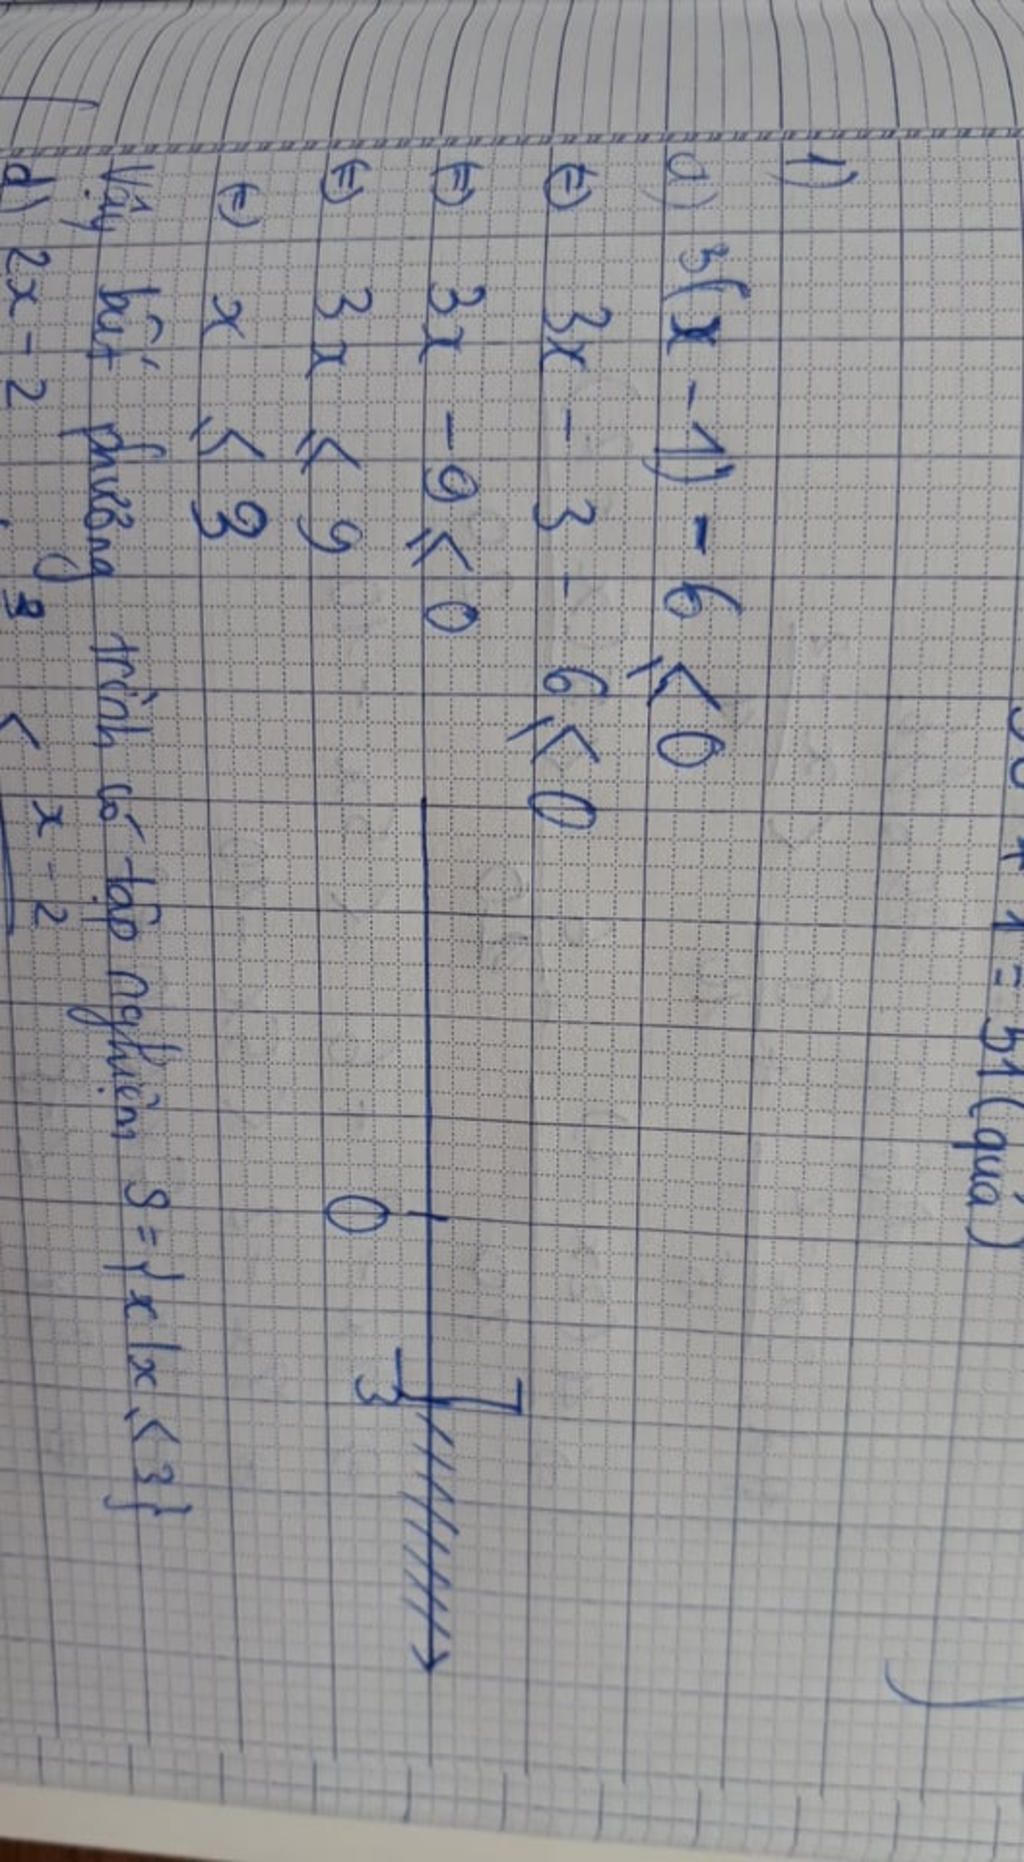 + 1 = 51 (quả)
1)
a) 3(x - 1) - 6 ⩽ 0
⇔ 3x - 3 - 6 ⩽ 0
⇔ 3x - 9 ⩽ 0
⇔ 3x ⩽ 9
0 3
⇔ x ⩽ 3
Vậy bất phương trình có tập nghiệm S = {x | x ⩽ 3}
d) 2x - 2 x - 2